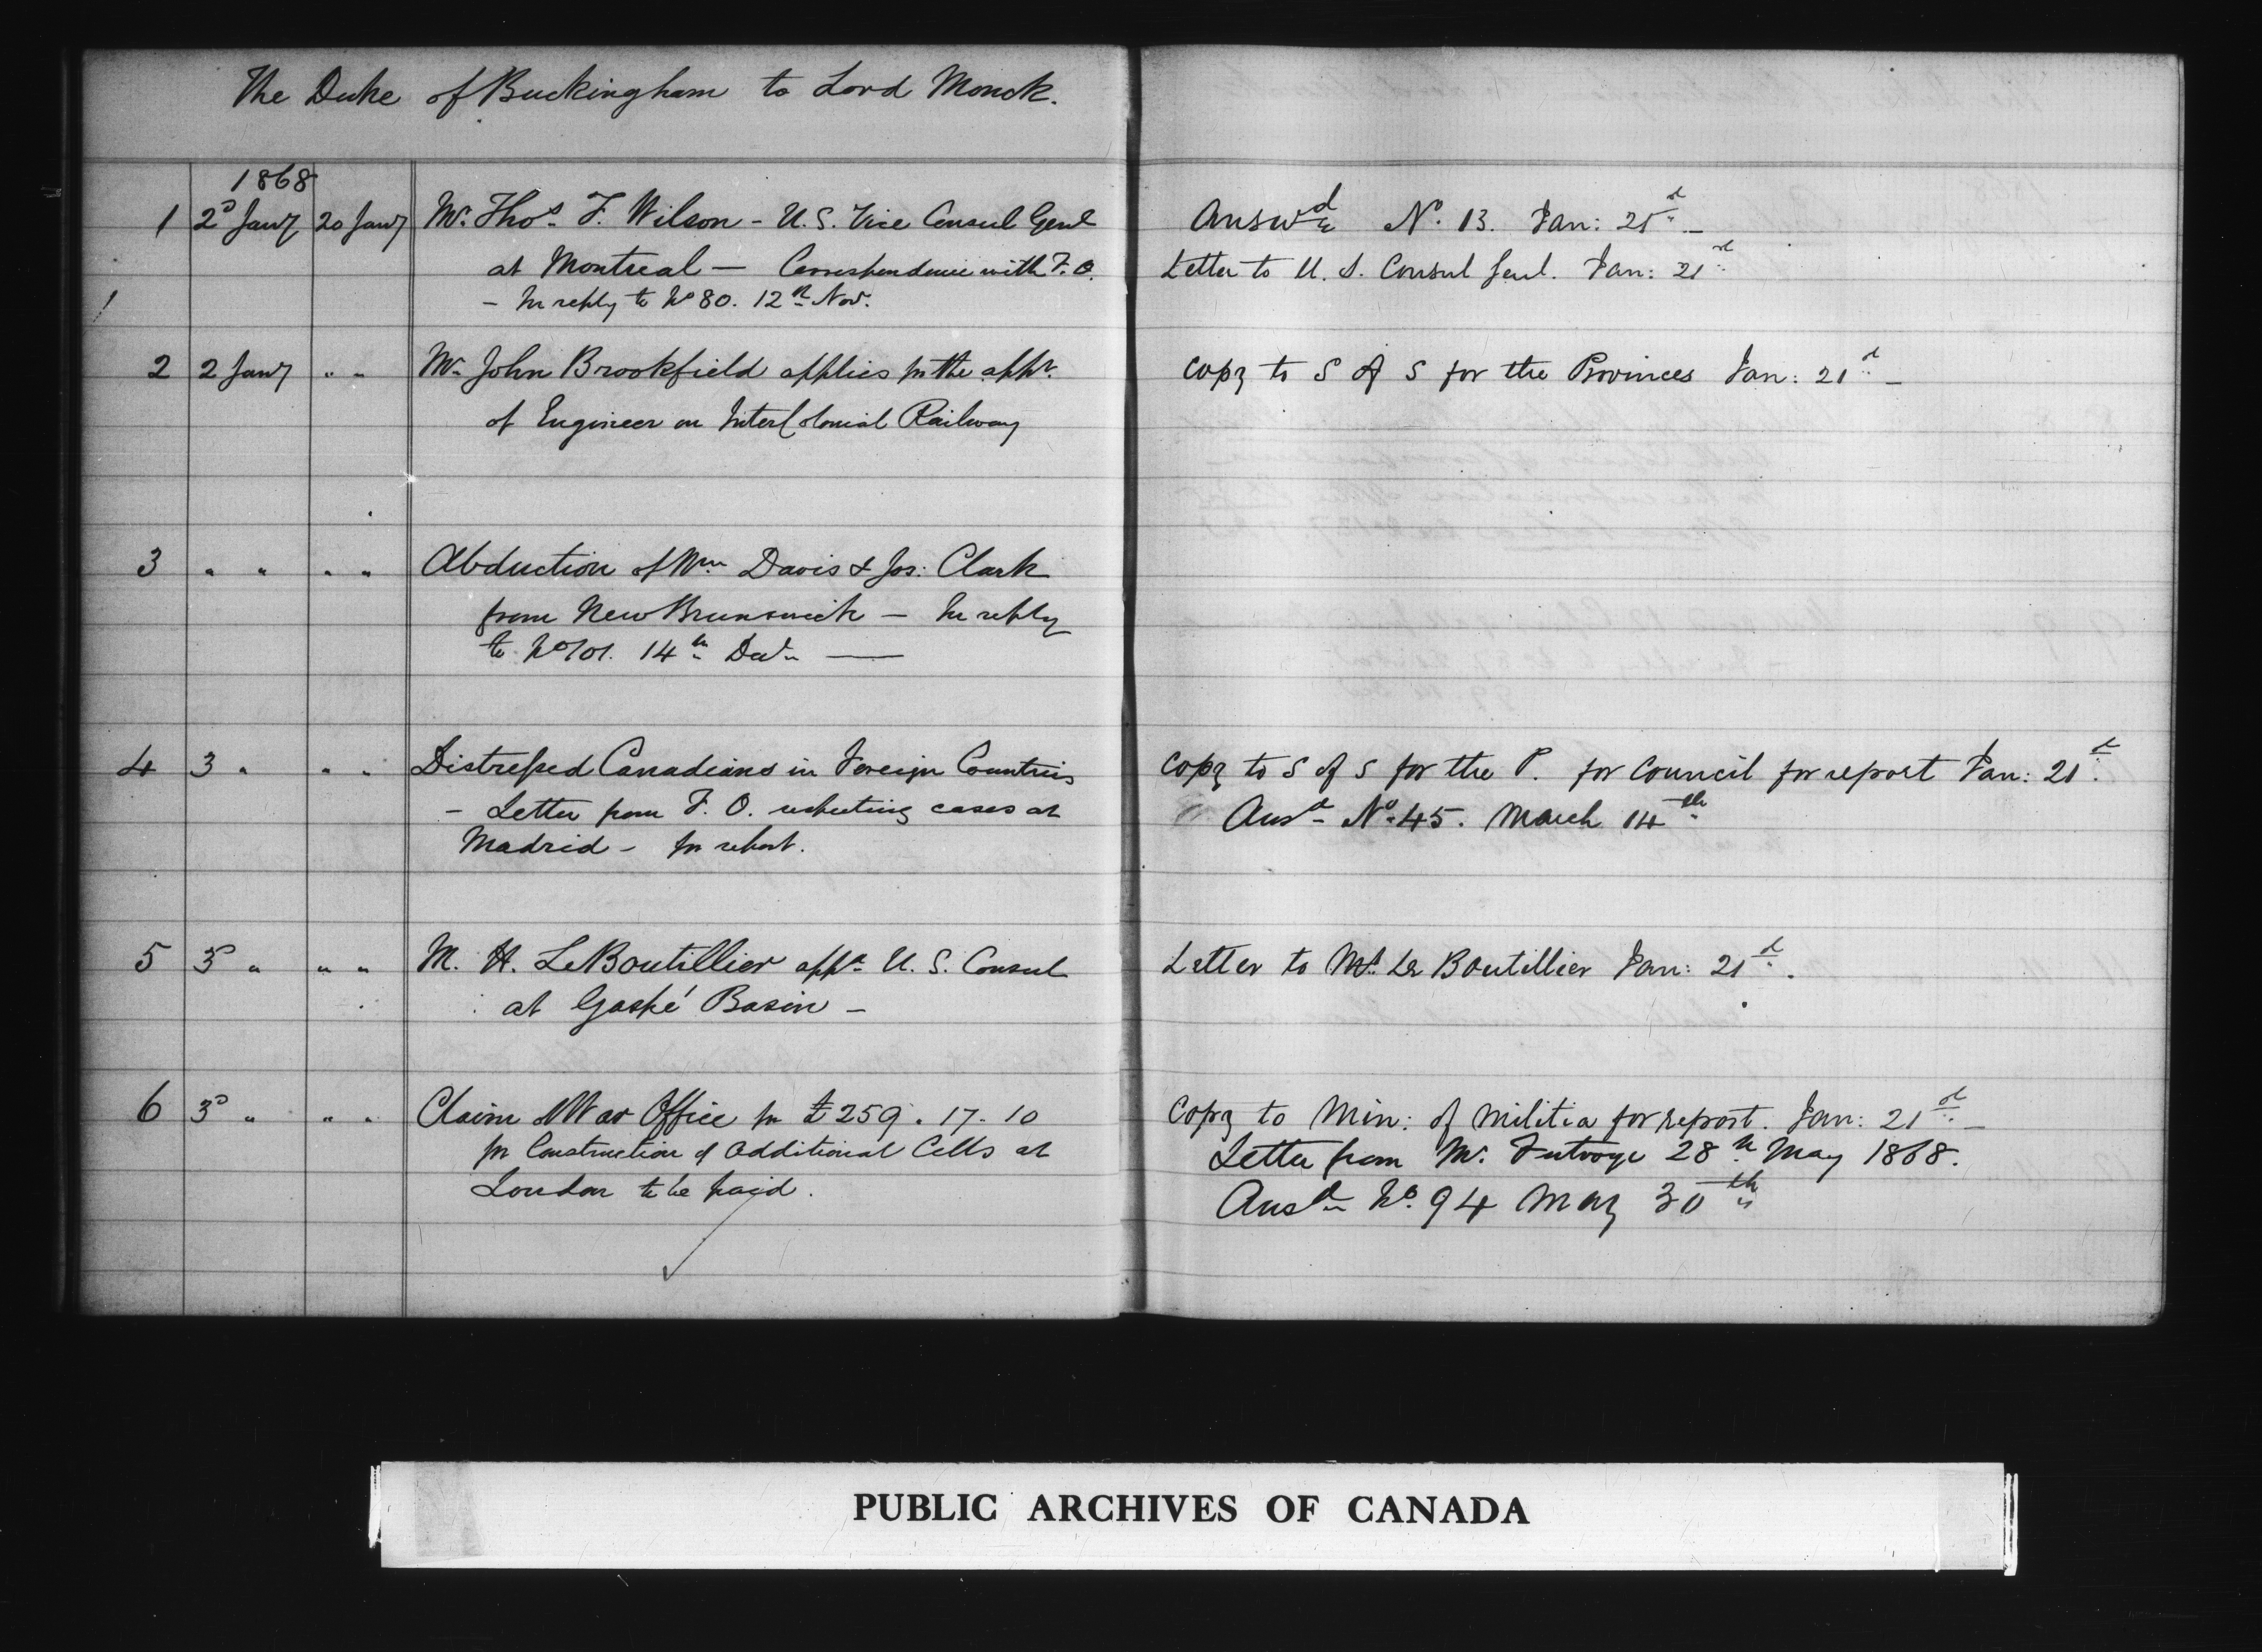 The Duke of Buckingham to Lord Monck.
1868
1 2d Jany 20 Jany Mr. Thos. F. Wilson - U.S. Vice Consul Genl
at Montreal — Correspondence with F.O.
- In reply to No 80. 12th Nov.
Answd No. 13. Jan: 21st. —
Letter to U. S. Consul Genl. Jan: 21st
2 2 Jany " " Mr. John Brookfield applies for the appt.
of Engineer on InterColonial Railway
Copy to S of S for the Provinces Jan: 21st —
3 " " " " Abduction of Wm. Davis & Jos: Clark
from New Brunswick — In reply
to No 101. 14th Decr. —
4 3 " " " Distressed Canadians in Foreign Countries
- Letter from F. O. respecting cases at
Madrid - for report.
Copy to S of S for the P. for Council for report Jan: 21st.
Ansd. No. 45. March 14th
5 3d " " " M. H. LeBoutillier appd. U. S. Consul
at Gaspé Basin —
Letter to Mr. Le Boutillier Jan: 21st.
6 3d " " " Claim of War Office for £259. 17. 10
for Construction of additional Cells at
London to be paid.
Copy to Min: of Militia for report. Jan: 21st —
Letter from Mr. Futvoye 28th May 1868.
Ansd. No. 94 May 30th
PUBLIC ARCHIVES OF CANADA